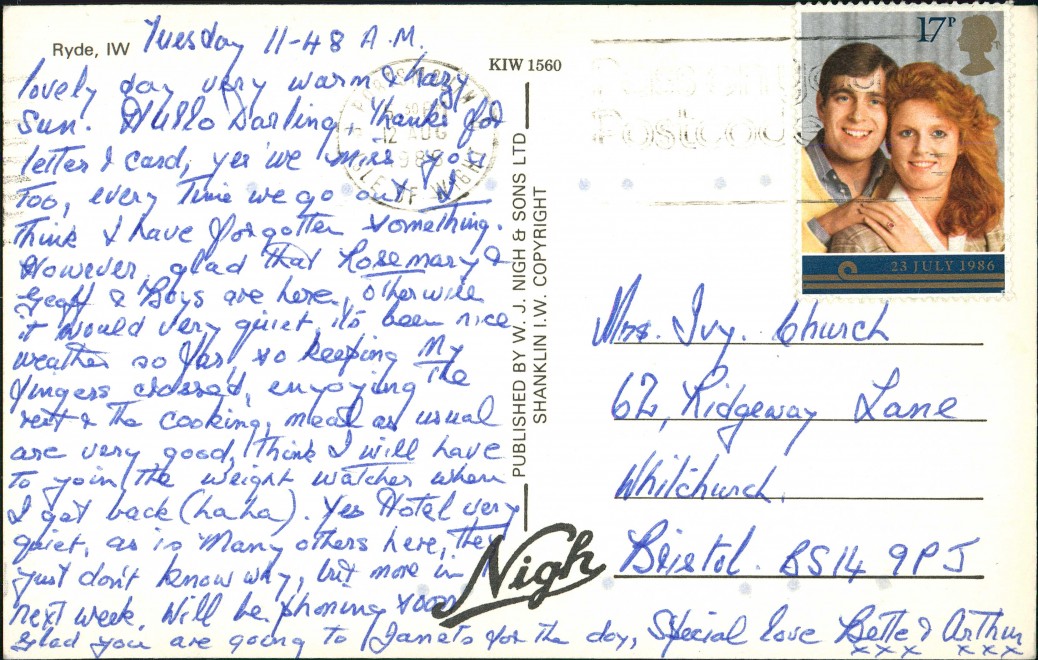 Ryde, IW
Tuesday 11-48 A.M.
lovely day very warm & hazy
Sun. Hullo Darling, thanks for
letter & card, yes we miss you
too, every time we go out I
think I have forgotten something.
However, glad that Rosemary &
Geoff & Boys are here, otherwise
it would very quiet, it's been nice
weather so far, so keeping my
fingers crossed, enjoying the
rest & the cooking, meals as usual
are very good, think I will have
to join the weight watchers when
I get back (ha ha). Yes Hotel very
quiet, as is many others here, they
just don't know why, but more in
next week. Will be phoning soon
Glad you are going to Janet's for the day, Special love Bette & Arthur
x x x x x x
KIW 1560
PUBLISHED BY W. J. NIGH & SONS LTD
SHANKLIN I.W. COPYRIGHT
Nigh
12 AUG
ISLE OF WIGHT
Postcode
17P
23 JULY 1986
Mrs. Ivy. Church
62, Ridgeway Lane
Whitchurch.
Bristol. BS14 9PJ